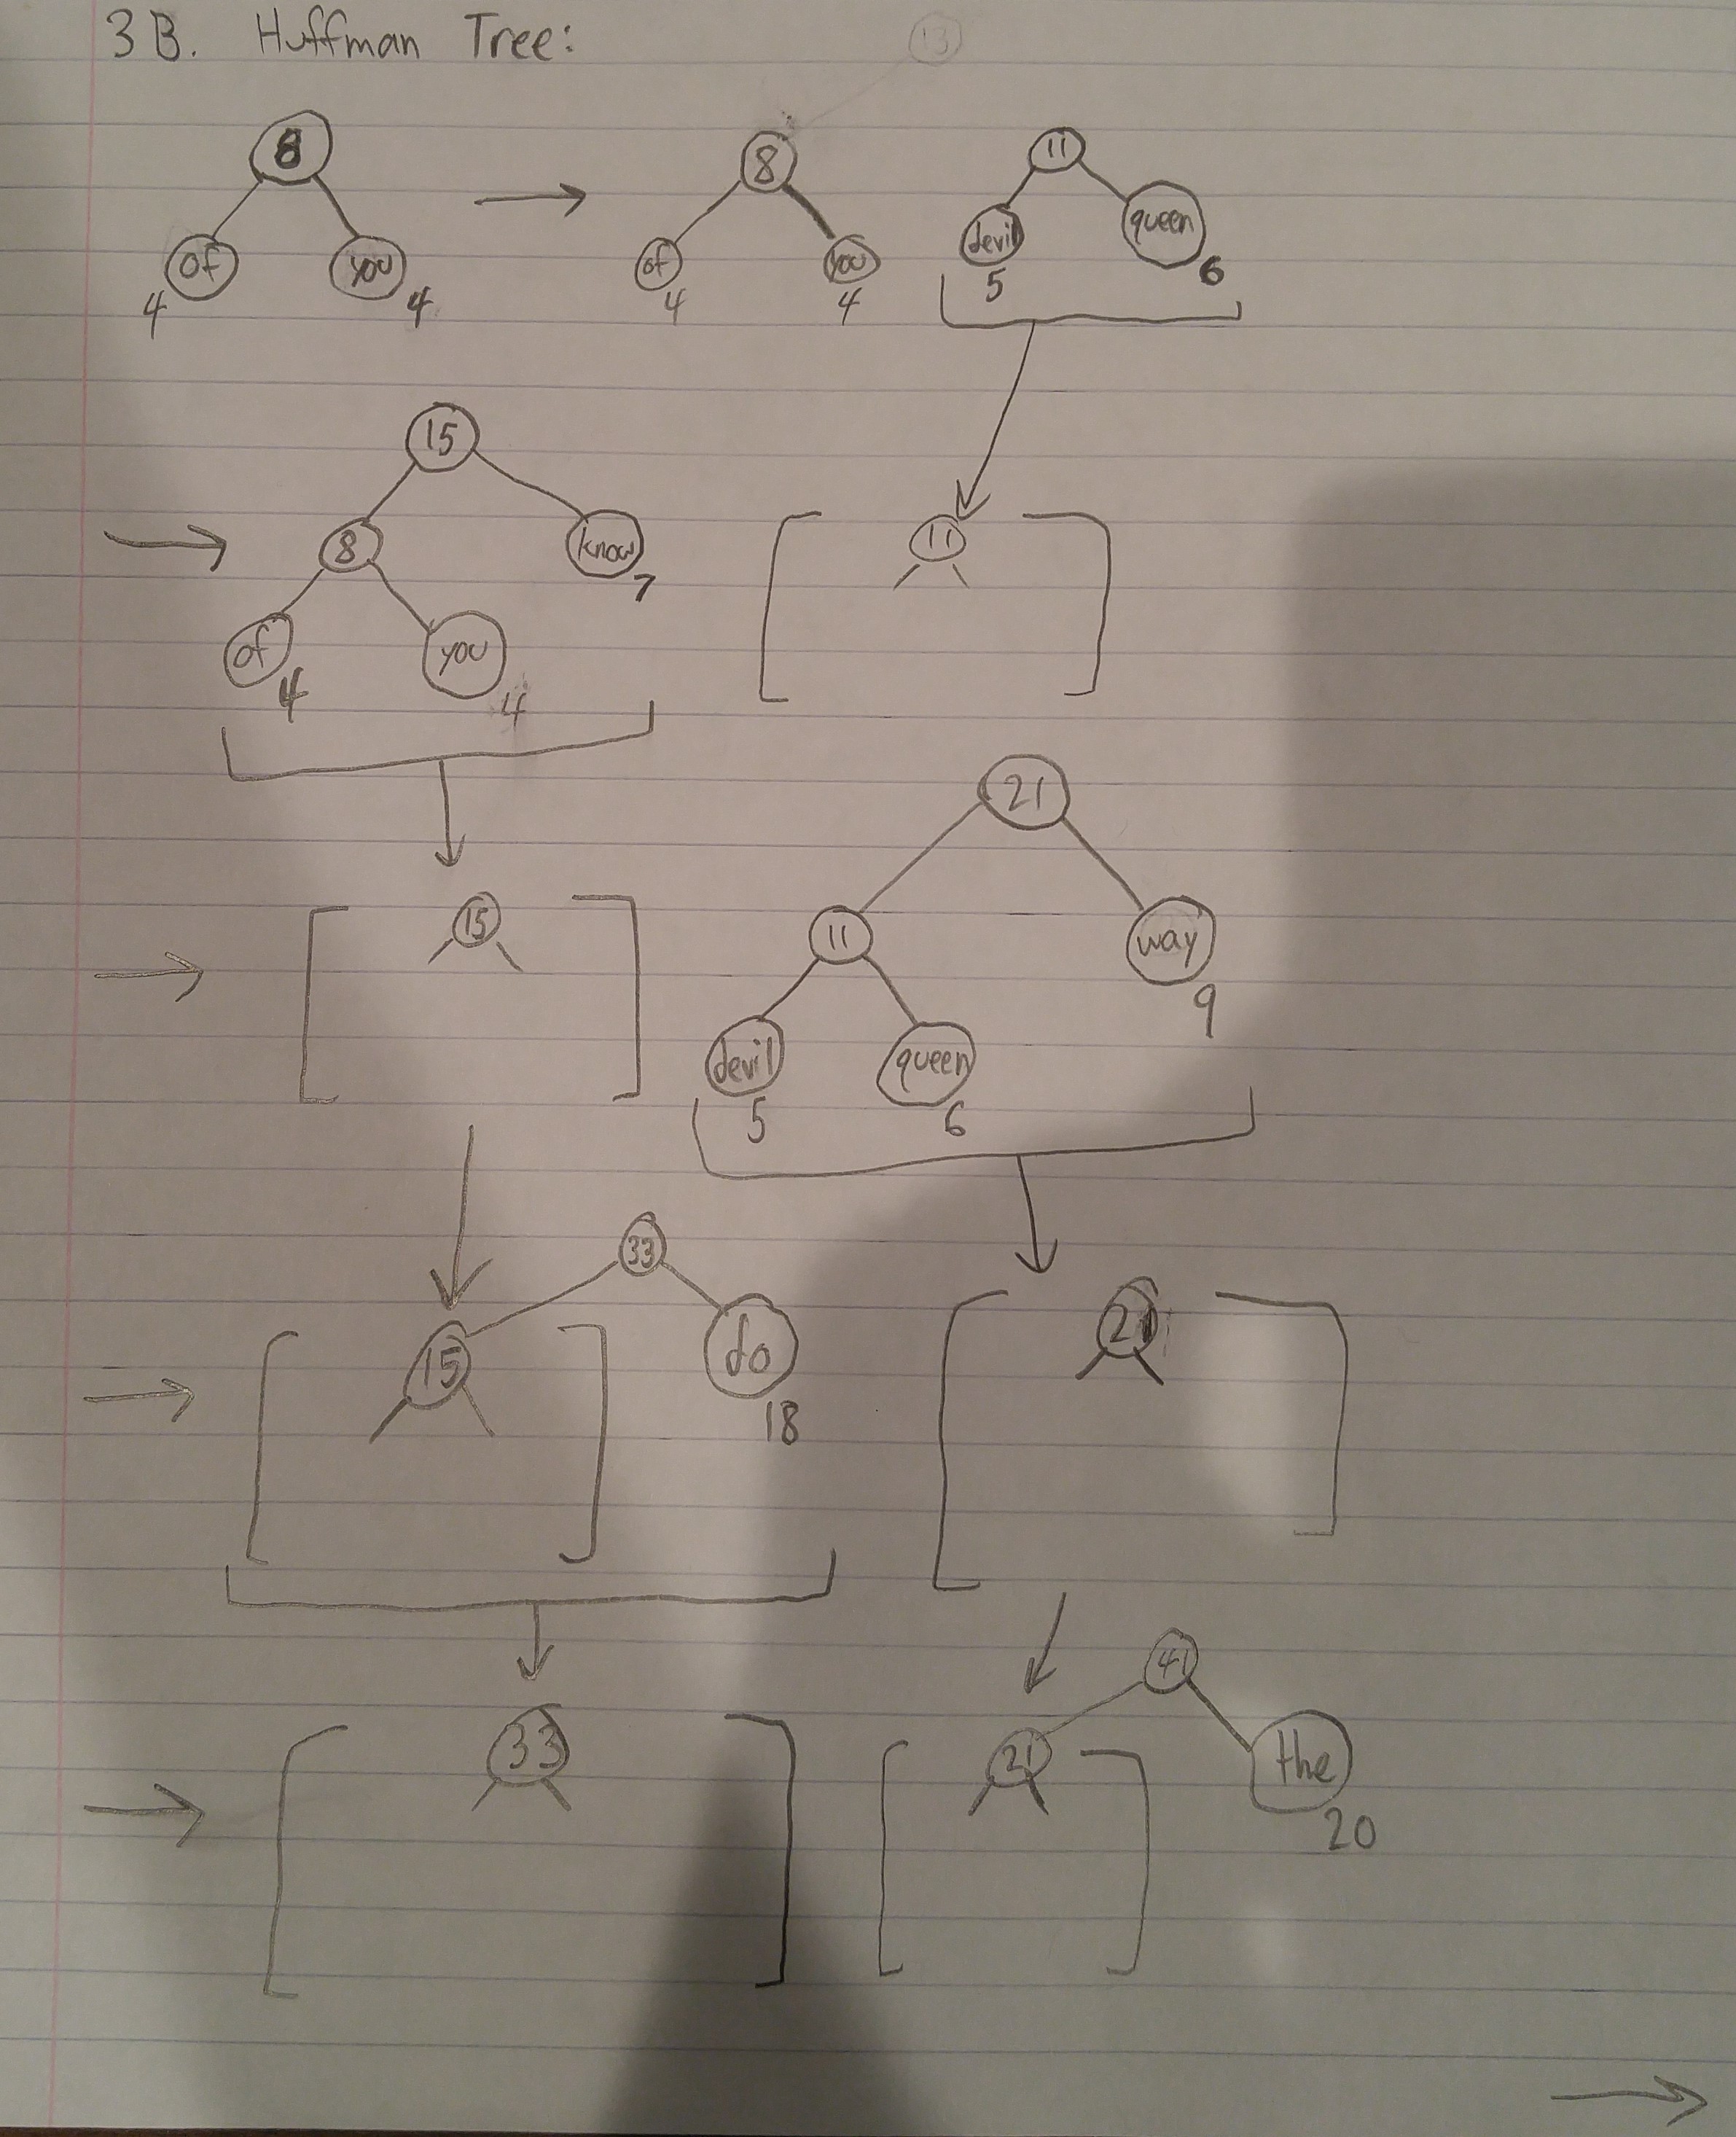 3B. Huffman Tree:
13
8
of
4
you
4
8
of
4
you
4
11
devil
5
queen
6
15
8
know
7
of
4
you
4
11
15
21
11
way
9
devil
5
queen
6
33
15
do
18
21
33
41
21
the
20